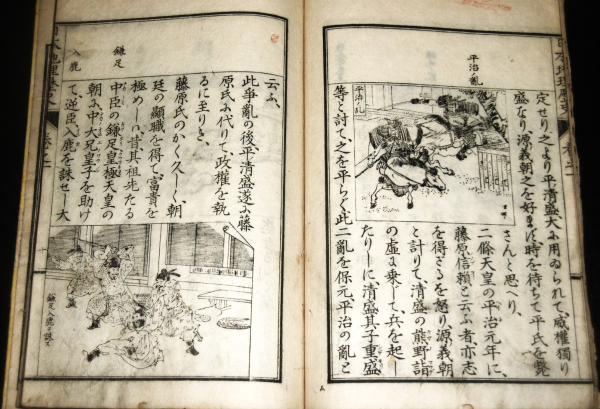 平治ノ亂
定せり、之より平清盛大ふ用ゐられて、威權獨り
盛なり、源義朝之を好まず、時を待ちて平氏を斃
さんと思へり、
二條天皇の平治元年に、
藤原信頼と云ふ者亦志
を得ざるを怒り、源義朝
と計りて、清盛の熊野詣
の虚ふ乗じて、兵を起し
たりしに、清盛其子重盛
等と討て、之を平らぐ此二亂を保元、平治の亂と
平治ノ亂
云ふ、
此爭亂の後、平清盛遂ふ藤
原氏ふ代りて、政權を執
るに至りき、
鎌足
藤原氏のかく久しく、朝
廷の顯職を得て、富貴を
極めしハ、昔其祖先たる
中臣の鎌足皇極天皇の
朝ふ中大兄皇子を助け
入鹿
て、逆臣入鹿を誅せし大
鎌足入鹿ヲ誅ス